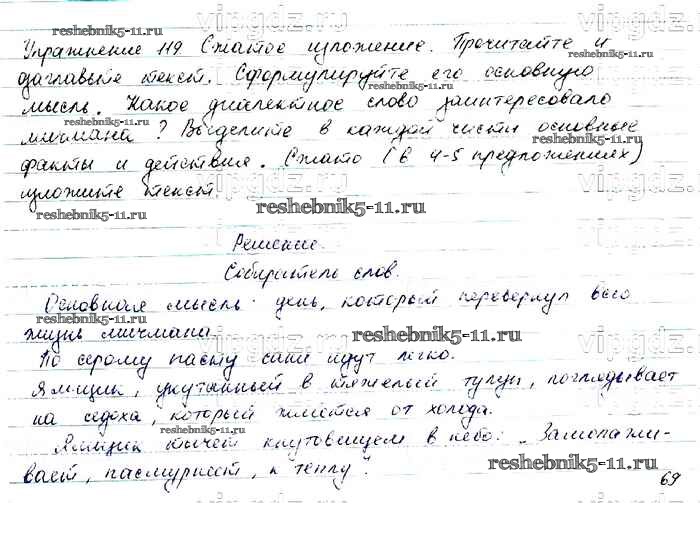 Упражнение 119 Сжатое изложение. Прочитайте и
озаглавьте текст. Сформулируйте его основную
мысль. Какое диалектное слово заинтересовало
мичмана? Выделите в каждой части основные
факты и действия. Сжато (в 4-5 предложениях)
изложите текст.
reshebnik5-11.ru
Решение.
Собиратель слов.
Основная мысль: день, который перевернул всю
жизнь мичмана.
По серому насту сани идут легко.
Ямщик, укутанный в тяжелый тулуп, поглядывает
на седока, который жмется от холода.
Ямщик тычет кнутовищем в небо: „Замолажи-
вает, пасмурнеет, к теплу".
69